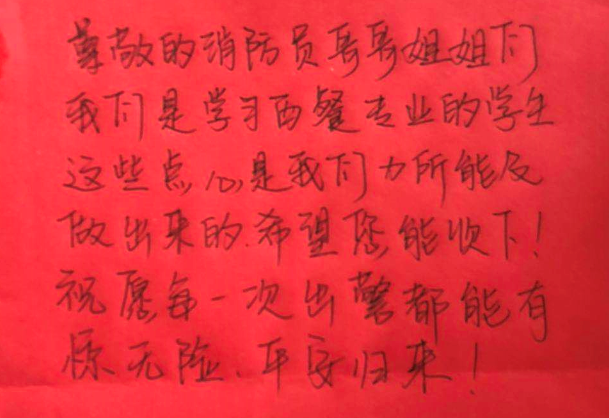 尊敬的消防员哥哥姐姐们
我们是学习西餐专业的学生
这些点心是我们力所能及
做出来的.希望您能收下!
祝愿每一次出警都能有
惊无险、平安归来!